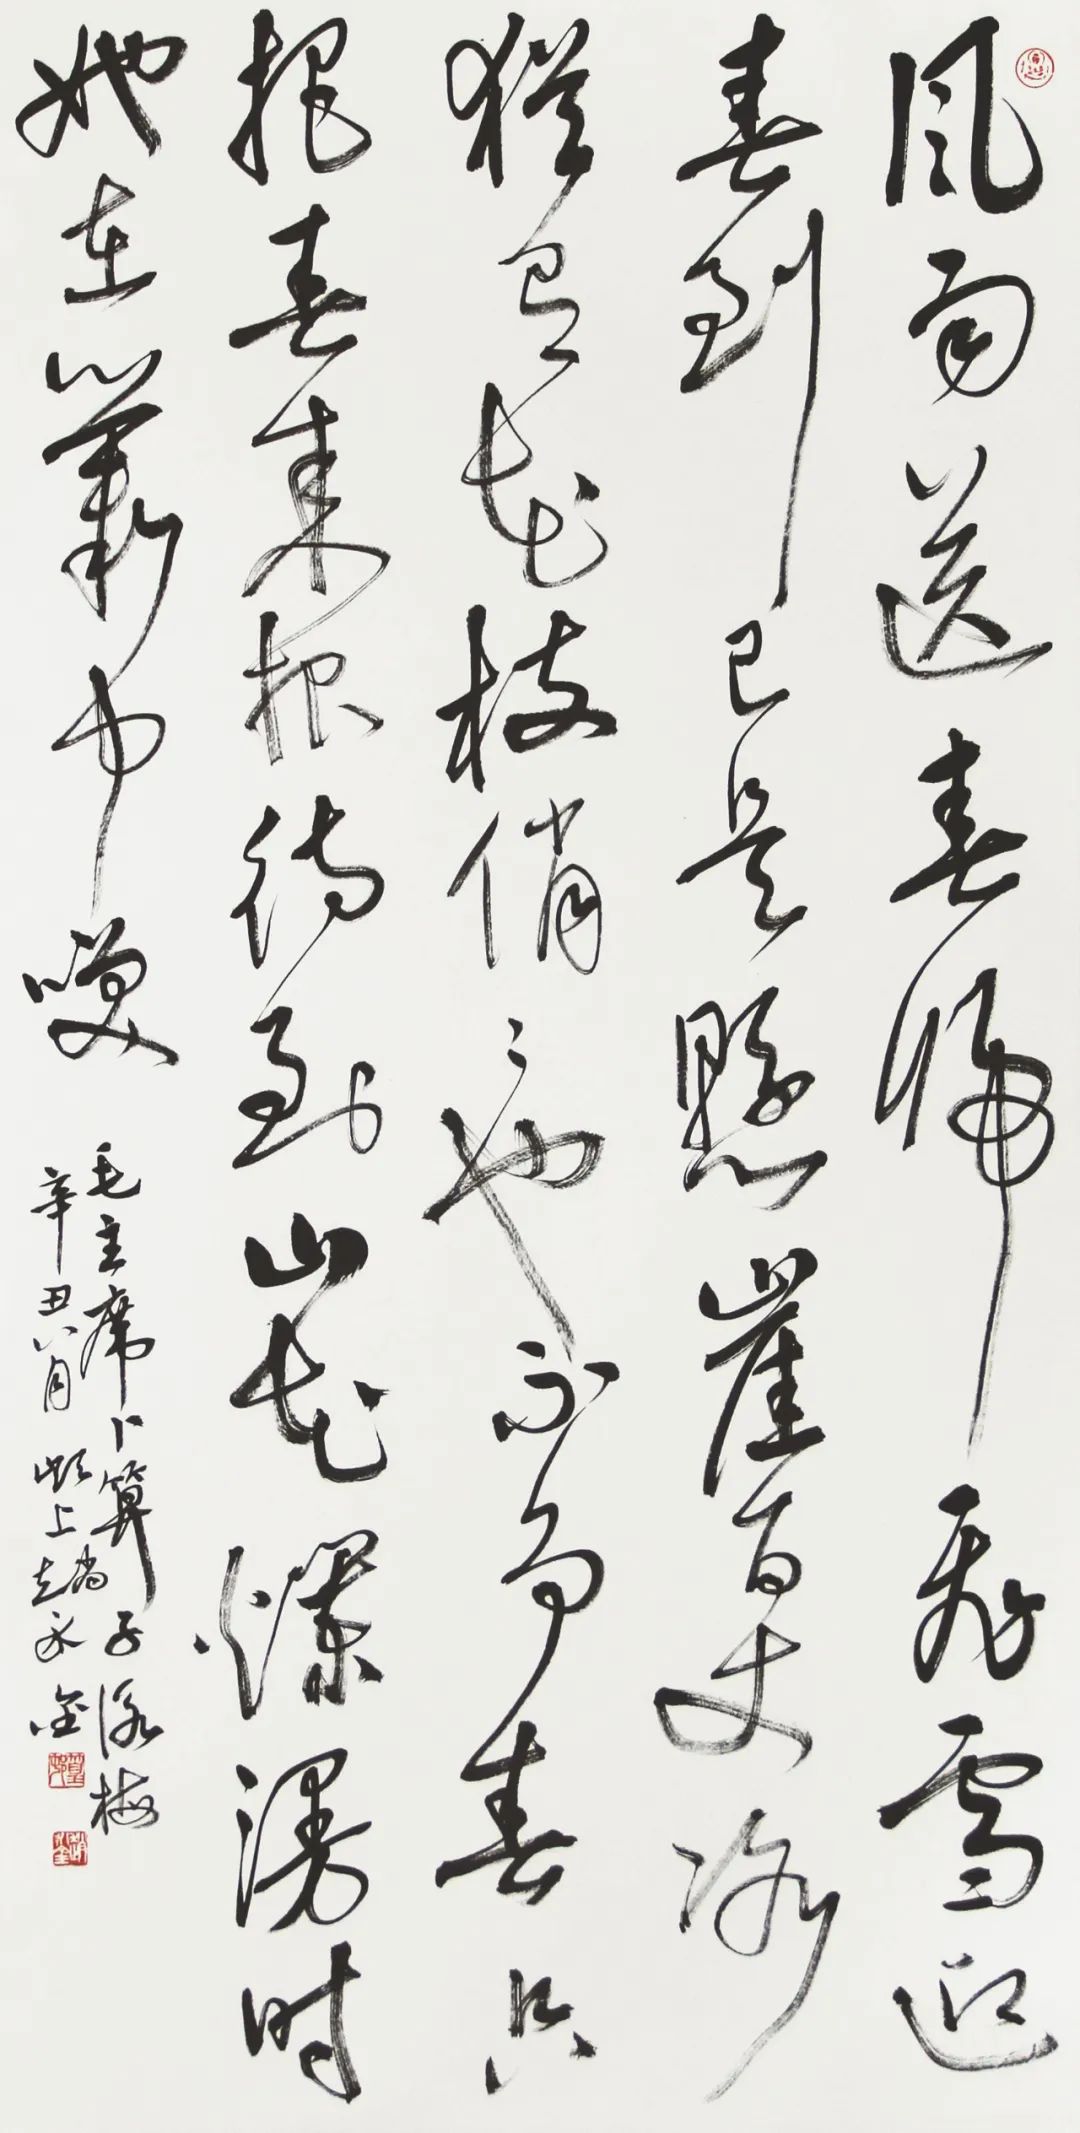 風雨送春歸飛雪迎
春到已是懸崖百丈冰
猶有花枝俏〻也不爭春只
把春來報待到山花爛漫时
她在叢中笑
毛主席卜算子詠梅
辛丑八月